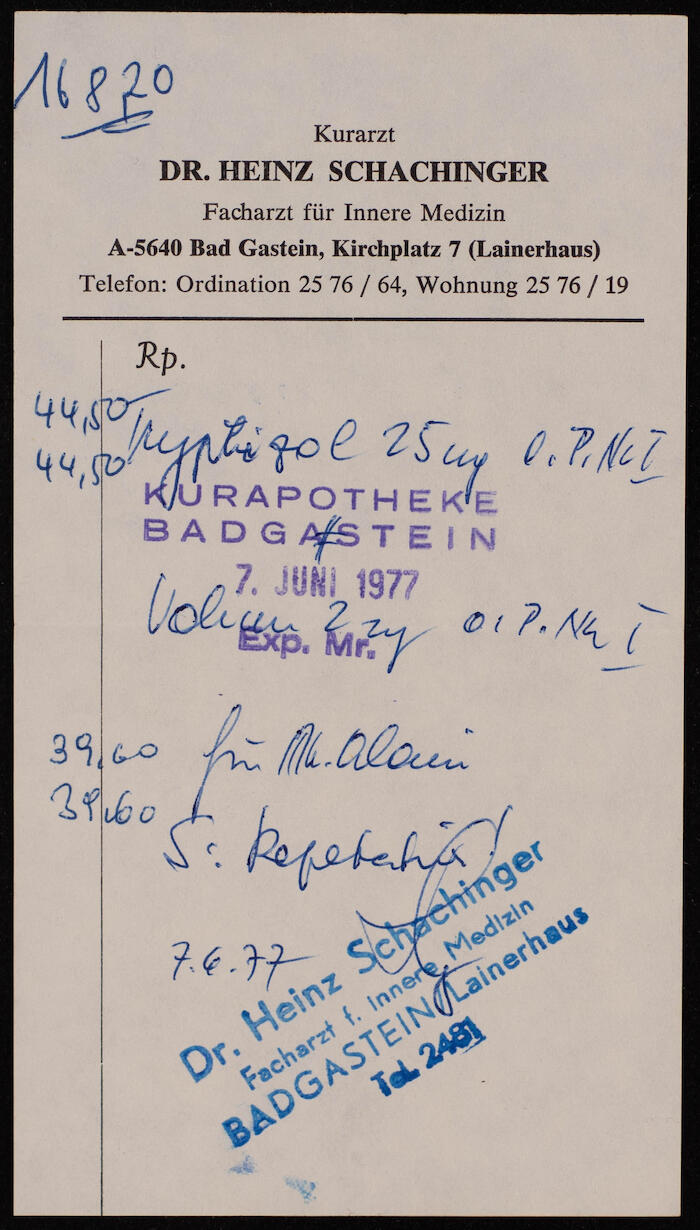 168,20
Kurarzt
DR. HEINZ SCHACHINGER
Facharzt für Innere Medizin
A-5640 Bad Gastein, Kirchplatz 7 (Lainerhaus)
Telefon: Ordination 25 76 / 64, Wohnung 25 76 / 19
Rp.
44,50
44,50
Tryptizol 25 mg O.P. No I
KURAPOTHEKE
BADGASTEIN
7. JUNI 1977
Valium 2 mg O.P. No I
Exp. Mr.
39,60
39,60
für
S: Repetatur!
7.6.77
Dr. Heinz Schachinger
Facharzt f. Innere Medizin
BADGASTEIN, Lainerhaus
Tel. 2481